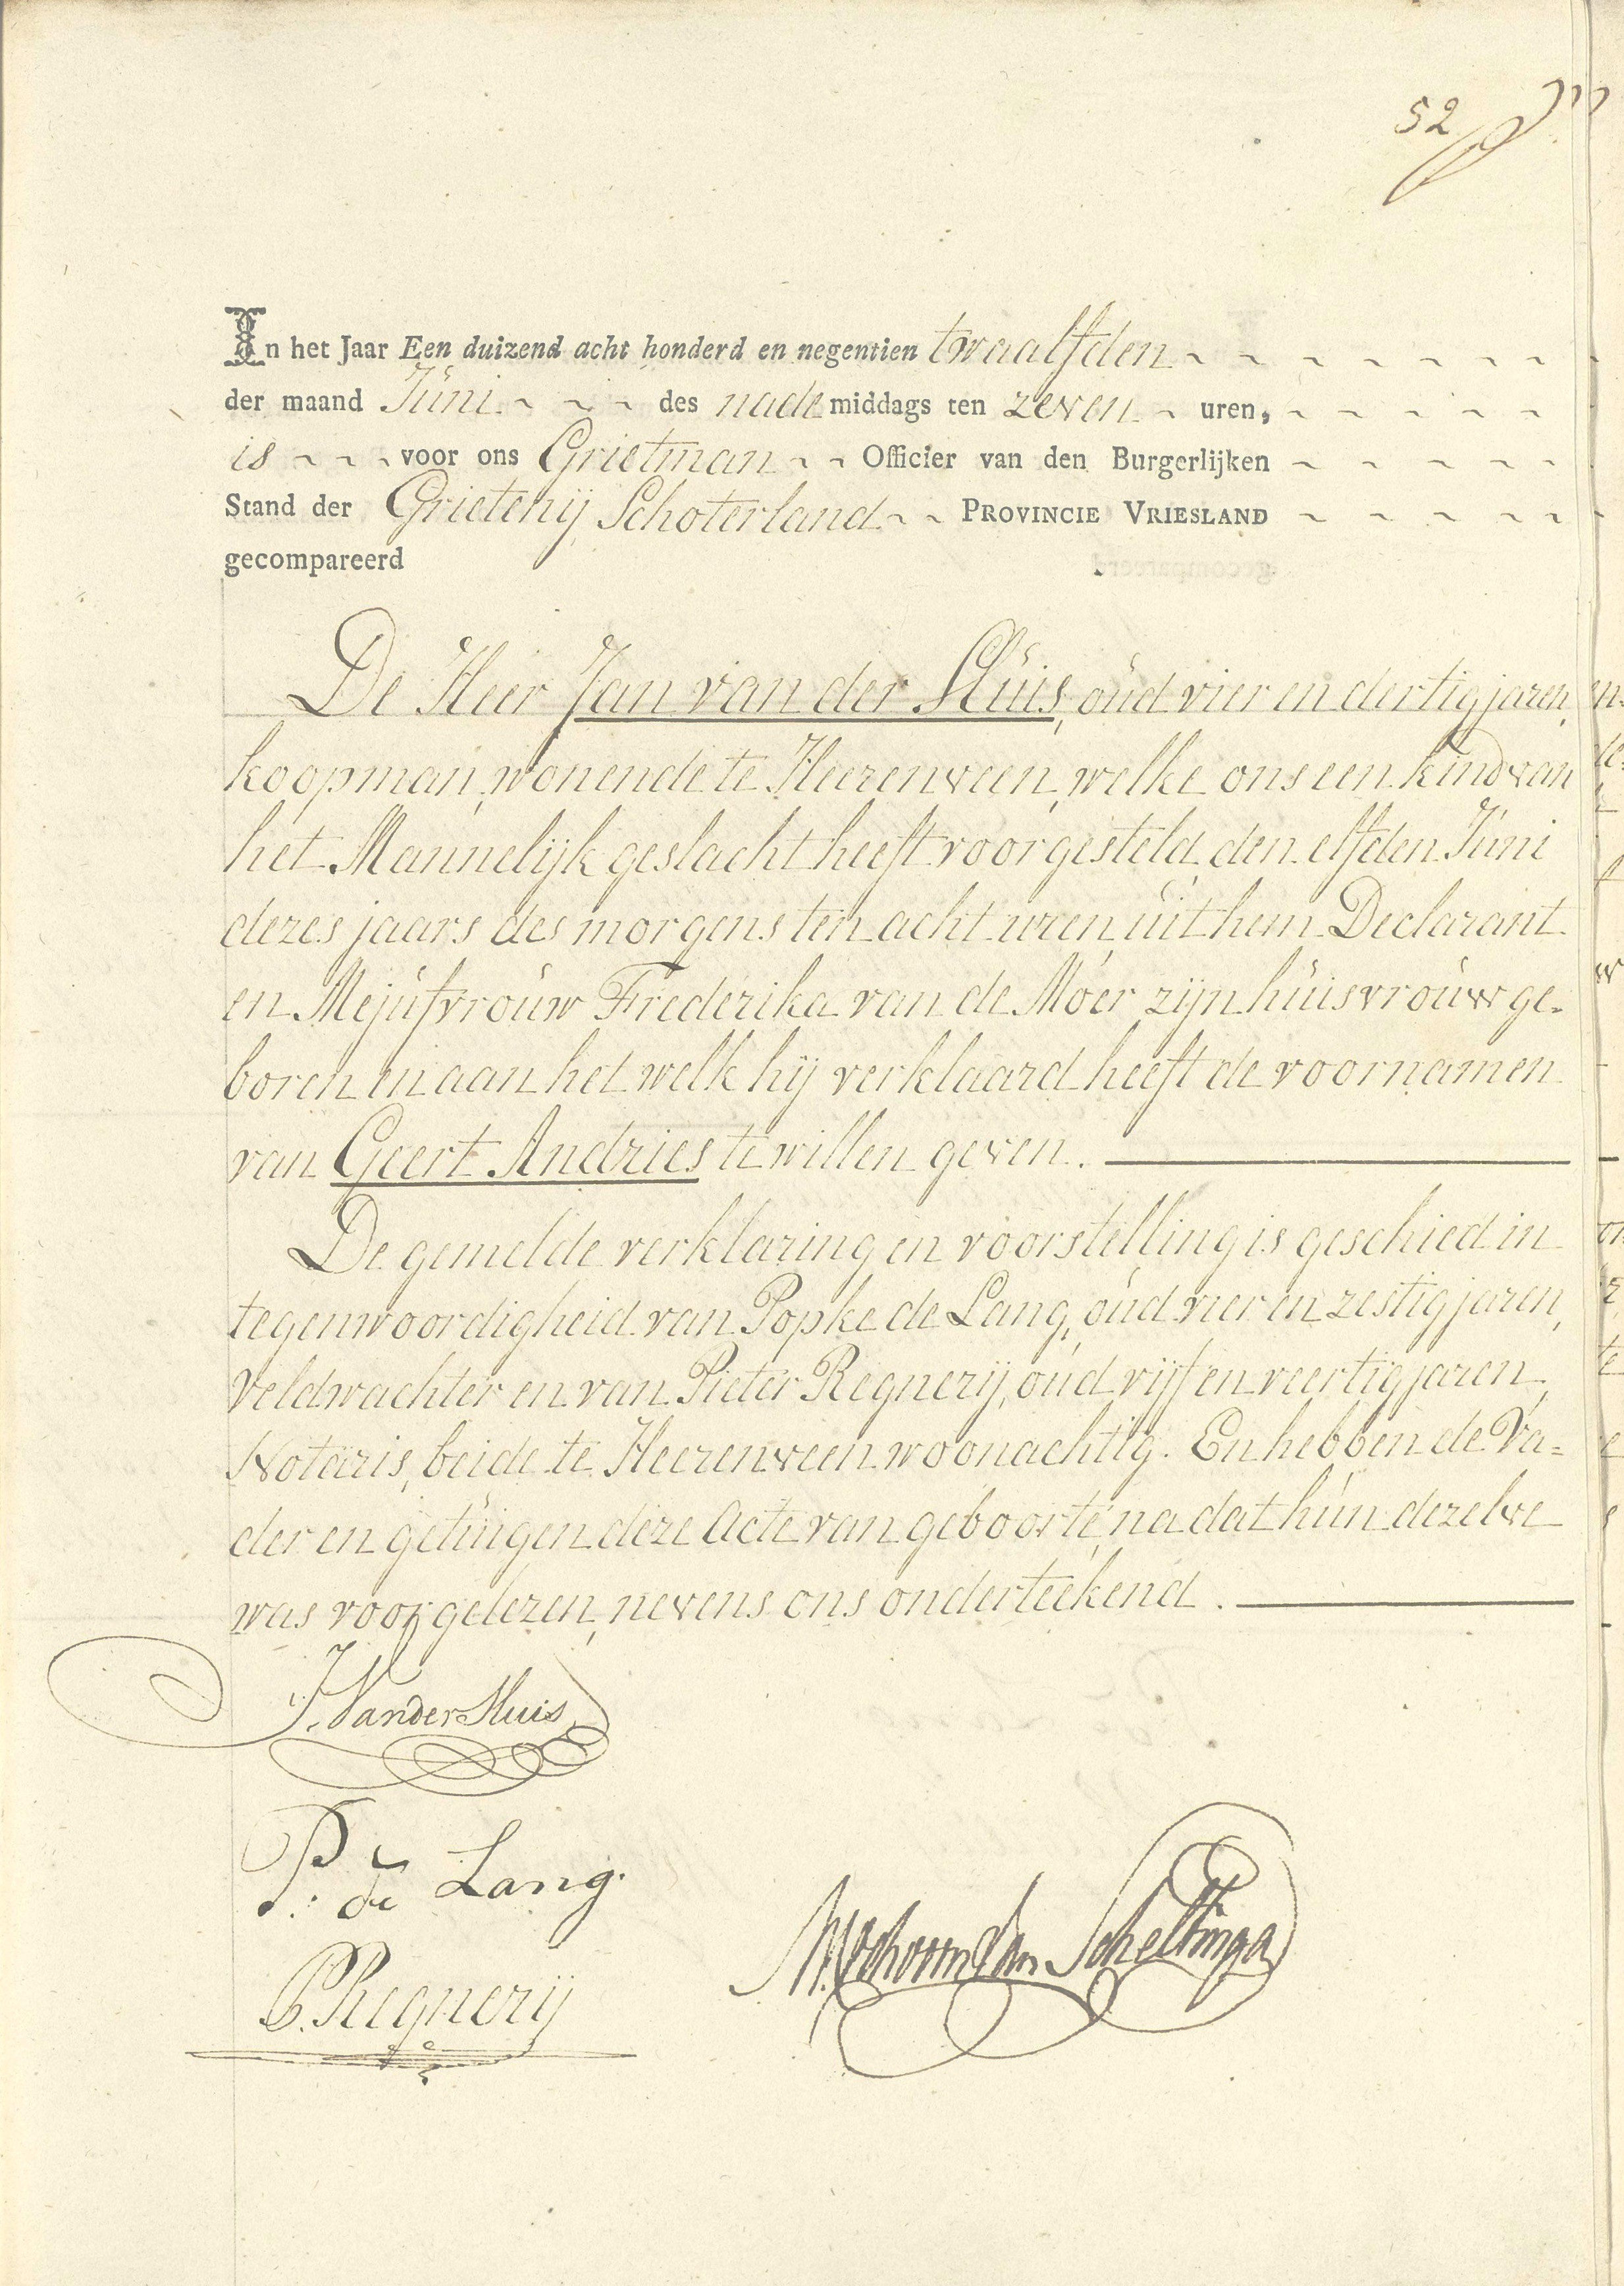 52
In het Jaar Een duizend acht honderd en negentien twaalfden
der maand Juni des nade middags ten zeven uren,
is voor ons Grietman Officier van den Burgerlijken
Stand der Grietenij Schoterland PROVINCIE VRIESLAND
gecompareerd
De Heer Jan van der Sluis, oud vier en dertig jaren,
koopman, wonende te Heerenveen, welke ons een kind van
het Mannelijk geslacht heeft voorgesteld, den elfden Juni
dezes jaars des morgens ten acht uren uit hem Declarant
en Mejufvrouw Frederika van de Moer zijn huisvrouw ge-
boren en aan het welk hij verklaard heeft de voornamen
van Geert Andries te willen geven.
De gemelde verklaring en voorstelling is geschied in
tegenwoordigheid van Popke de Lang, oud vier en zestig jaren,
Veldwachter en van Pieter Regnerij, oud vijf en veertig jaren,
Notaris, beide te Heerenveen woonachtig. En hebben de Va=
der en getuigen deze Acte van geboorte, na dat hun dezelve
was voorgelezen, nevens ons onderteekend.
J. Van der Sluis
P: de Lang.
P. Regnerij
Schelttinga